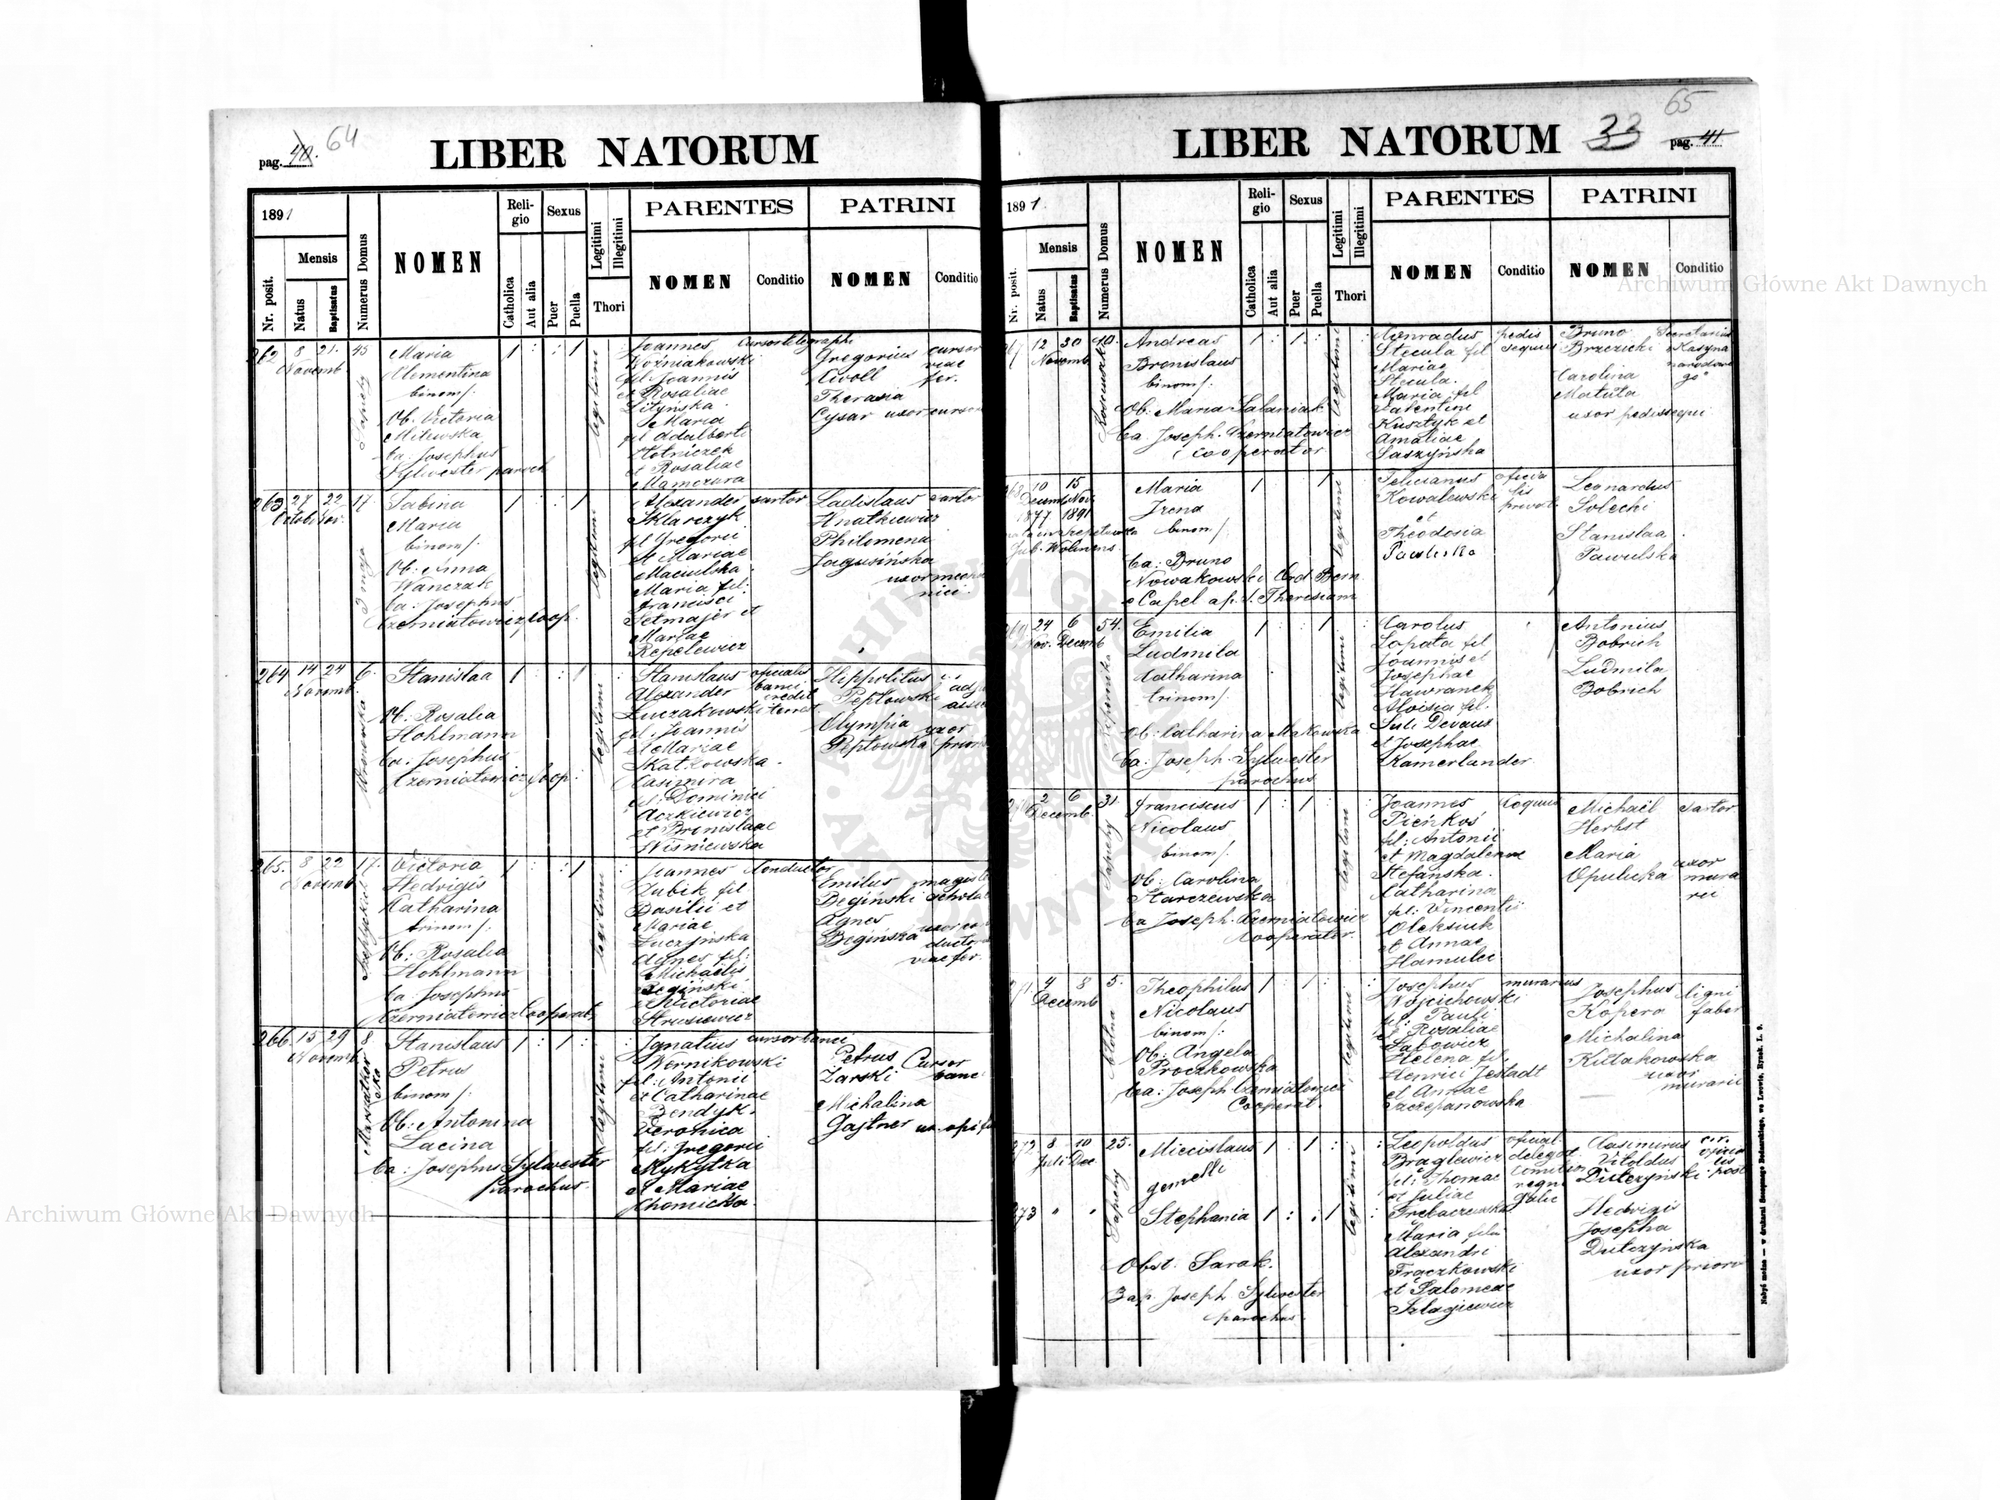 64
pag. 40.
LIBER NATORUM
1891
Nr. posit.
Mensis
Natus
Baptisatus
Numerus Domus
NOMEN
Religio
Catholica
Aut alia
Sexus
Puer
Puella
Legitimi
Illegitimi
Thori
PARENTES
NOMEN
Conditio
PATRINI
NOMEN
Conditio
262 8 21. 45
Novemb.
Sapiehy
Maria
Clementina
binom/:
Ob. Victoria
Milewska
Ba: Josephus
Sylwester paroch
1 : : 1
legitimi
Joannes cursor telegraphi
Woźniakowski
fil Joannis
et Rosaliae
Lityńska
Maria
fil Adalberti
et Rosaliae
Mamczura
Gregorius cursor
Kroll viae fer.
Therasia
Cysar uxor cursor
263 27 22 17.
Octob. Nov.
3 maja
Sabina
Maria
binom/:
Ob: Anna
Wanczak
Ba: Josephus
Czerniatowicz, Coop.
1 : : 1
legitimi
Alexander sartor
Sklarczyk
fil Gregorii
et Mariae
Maciulska
Maria fil:
Francisci
Setmajer et
Mariae
Repelewicz
Ladislaus sartor
Hnatkiewicz
Philomena
Jagusińska
uxor mecha
nici.
264 14 24 6.
Novemb.
Stanislaa
Ob: Rosalia
Hohlmann
Ba: Josephus
Czerniatowicz Coop:
1 : : 1
legitimi
Stanislaus officialis
Alexander banci
Luczakowski credit
terrest.
fil: Joannis
et Mariae
Skatkowska.
Casimira
fil: Dominici
Aczkiewicz
et Bronislaae
Wiśniewska
Hippolitus
Peptowski
Olympia uxor
Peptowska prioris
265. 8 22 17.
Novemb.
Victoria
Hedvigis
Catharina
trinom/:
Ob: Rosalia
Hohlmann
Ba: Josephus
Czerniatowicz Cooperat.
1 : : 1
legitimi
Joannes Conductor
Zubik fil
Basilii et
Mariae
Luczyńska
Agnes fil:
Michaelis
Begiński
et Victoriae
Strusiewicz
Emilus magist
Begiński schola
Agnes
Begińska uxor con
ductor
viae fer.
266. 15 29 8
Novemb.
Stanislaus
Petrus
binom/:
Ob: Antonina
Lacina
Ba: Josephus Sylwester
parochus.
1 : 1 :
legitimi
Ignatius cursor banci
Wernikowski
fil: Antonii
et Catharinae
Bendyk.
Veronica
fil: Gregorii
Mykytka
et Mariae
Chomicka.
Petrus Cursor
Zarski banci
Michalina
Gajtner ux. opif
65
33 pag. 41
LIBER NATORUM
1891.
Nr. posit.
Mensis
Natus
Baptisatus
Numerus Domus
NOMEN
Religio
Catholica
Aut alia
Sexus
Puer
Puella
Legitimi
Illegitimi
Thori
PARENTES
NOMEN
Conditio
PATRINI
NOMEN
Conditio
267 12 30 40.
Novemb.
Andreas
Bronislaus
binom/:
Ob: Maria Salaniak
Ba: Joseph. Czerniatowicz
cooperator
1 : 1 :
legitimi
Conradus pedis
Stecula fil sequus
Mariae
Stecula.
Maria fil
Valentini
Kusztyk et
Amaliae
Saszyńska
Bruno Secretarius
Brzezicki Kasyna
narodowe
go
Carolina
Matuta
uxor pedissequi
268 10 15
Decemb. Nov.
1877 1891
Maria
Irena
binom/:
Ba: Bruno
Nowakowski Ord. Bern.
Capel ap. S. Theresiam
1 : : 1
legitimi
Felicianus oficia
Kowalewski lis
privat.
et
Theodosia
Pawluska
Leonardus
Solecki
Stanislaa
Pawulska
269 24 6 54.
Nov. Decemb
Kopernika
Emilia
Ludmila
Catharina
trinom/:
Ob: Catharina Makowska
Ba: Joseph. Sylwester
parochus
1 : : 1
legitimi
Carolus
Lopata fil
Joannis et
Josephae
Hawranek
Aloisia fil.
Juli Devaus
et Josephae
Kamerlander
Antonius
Bobrich
Ludmila
Bobrich
270 2 6 31.
Decemb.
Sapiehy
Franciscus
Nicolaus
binom/:
Ob: Carolina
Starczewska
Ba Joseph. Czerniatowicz
Cooperator.
1 : 1 :
legitimi
Joannes Coquus
Pieńkoś
fil: Antonii
et Magdalenae
Stefańska.
Catharina
fil: Vincentii
Oleksiuk
et Annae
Hamulec
Michaël sartor
Herbst
Maria uxor
Opulicka mura
rii
271. 4 8 5.
Decemb
Theophilus
Nicolaus
binom/:
Ob: Angela
Proczkowska
Ba: Joseph. Czerniatowicz
Cooperat.
1 : 1 :
legitimi
Josephus murarius
Wojcichowski
fil: Pauli
et Rosaliae
Sabowicz
Helena fil.
Henrici Jestadt
et Annae
Szczepanowska
Josephus ligni
Kopera faber
Michalina
Kultakowska
uxor
murarii
272 8 10 25.
Juli Dec
Sapiehy
Miecislaus
gemelli
1 : 1 :
legitimi
Leopoldus oficial.
Braglewicz delegat
fil: Thomae
et Juliae
Trebaczewska
Maria filia
Alexandri
Fraczkowski
et Salomeae
Szlagiewicz
Casimirus
Vitoldus
Dutczyński
Hedvigis
Josepha
Dutczyńska
uxor prioris
273 " "
Stephania
1 : : 1
Obst: Sarak.
Bap. Joseph Sylwester
parochus.
Nabyć można — w drukarni Szczęsnego Bednarskiego, we Lwowie, Rynek. L. 9.
Archiwum Główne Akt Dawnych
Archiwum Główne Akt Dawnych